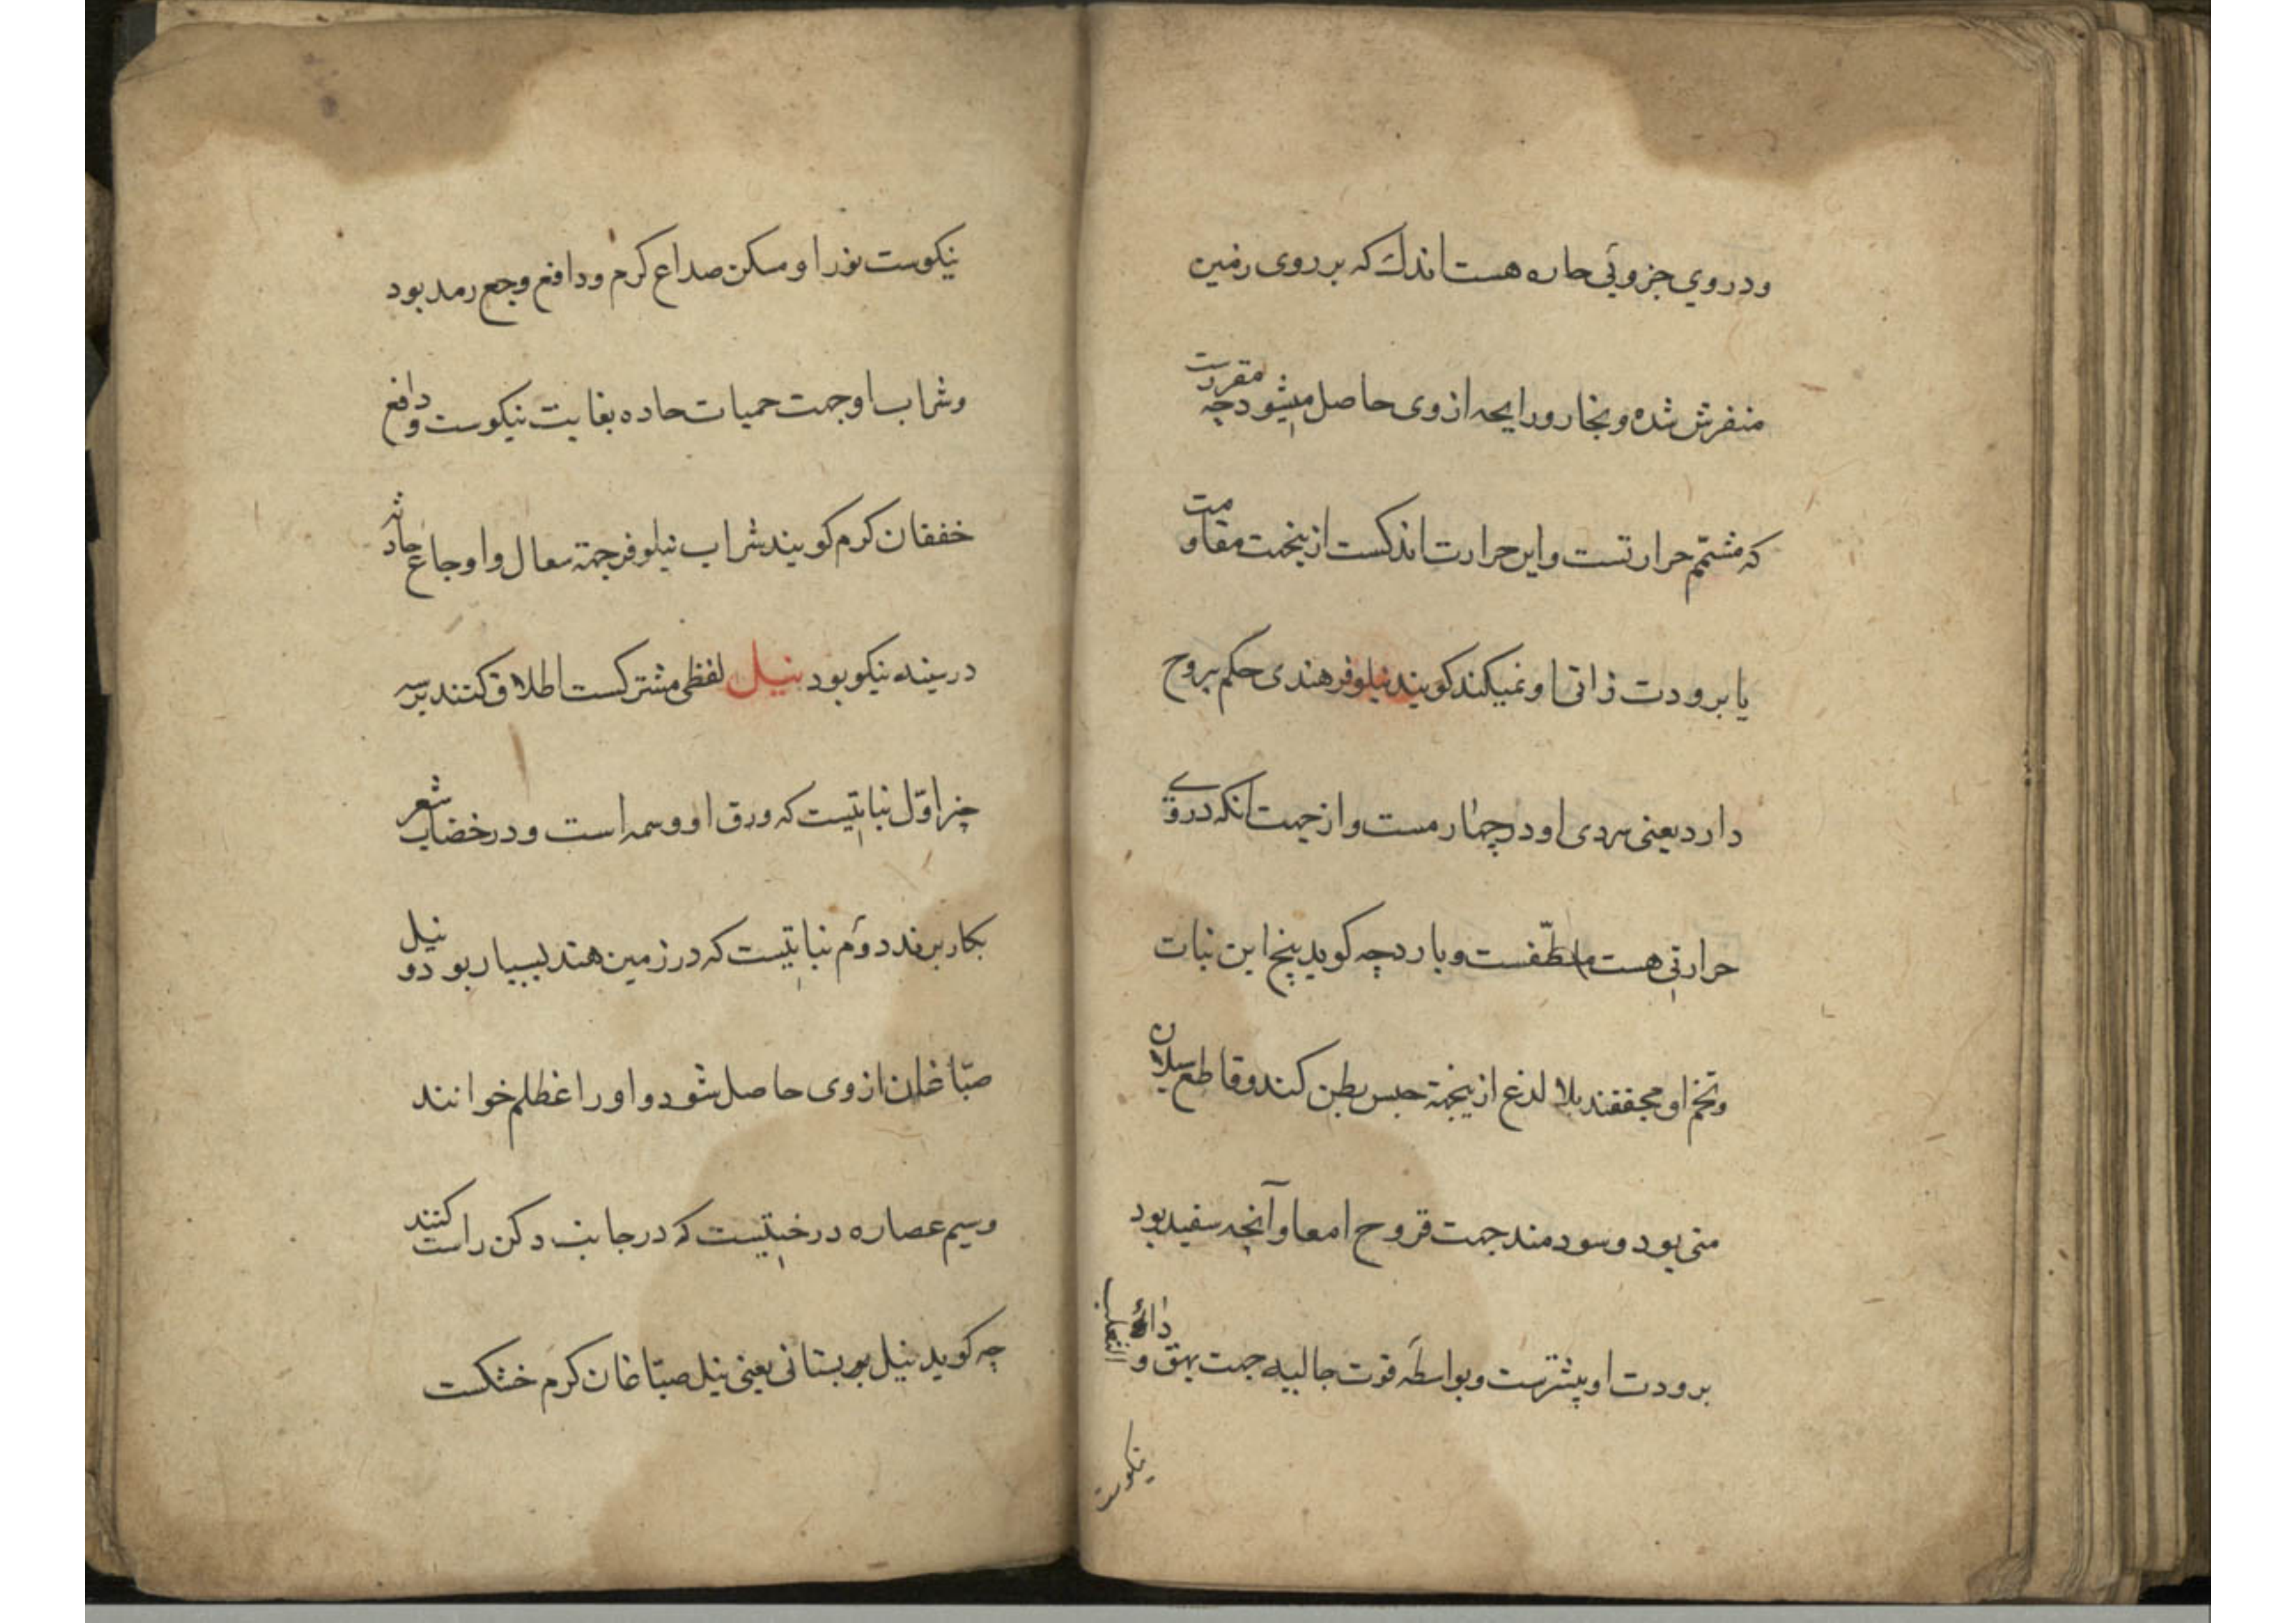 ودروي جزويی حاره هست اندك كه بر روی زمین
منفرش شده و بخار ورایحه از وی حاصل میشود چه مقررست
كه مشمّم حرارتست واین حرارت اندكست ازینجهت مقاومت
با برودت ذاتی او نمیكند كویند نیلوفر هندی حكم یبروح
دارد یعنی سردی او در چهارمست واز جهت انكه دروی
حرارتی هست ملطّفست وبارد چه كوید بیخ این نبات
وتخم او مجففند بلا لدغ ازینجهة حبس بطن كند وقاطع سیلان
منی بود وسودمند جهت قروح امعا وآنچه سفید بود
برودت او بیشترست وبواسطه قوت جالیه جهت بهق و داء الثعلب
نیكوست
نیكوست نور او مسكن صداع كرم ودافع وجع رمد بود
وشراب او جهت حمیات حاده بغایت نیكوست و دافع
خفقان كرم كویند شراب نیلوفر جهة سعال و اوجاع حادثه
در سینه نیكو بود نیل لفظی مشتركست اطلاق كنند بر سه
چیز اوّل نباتیست كه ورق او وسمه است ودر خضاب شعر
بكار برند دوّم نباتیست كه در زمین هند بسیار بود و نیل
صبّاغان از وی حاصل شود و او را عظلم خوانند
وسیم عصاره درختیست كه در جانب دكن راست كنند
چه كوید نیل بوستانی یعنی نیل صبّاغان كرم خشكست